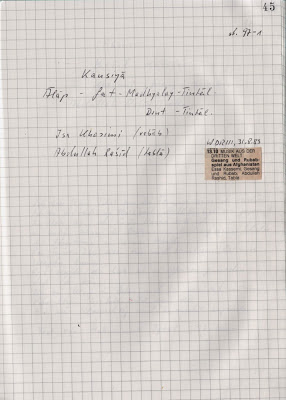 45
Nr. 97-1
Kausiyā
Ālāp - Gat - Madhyalay - Tintāl
Drut - Tintāl
Isa Khassemi (rebāb)
Abdullah Rašid (tablā)
WDR III, 31.8.83
MUSIK AUS DER
DRITTEN WELT
Gesang und Rubab-
spiel aus Afghanistan
Essa Kassemi, Gesang
und Rubab; Abdullah
Rashid, Tabla